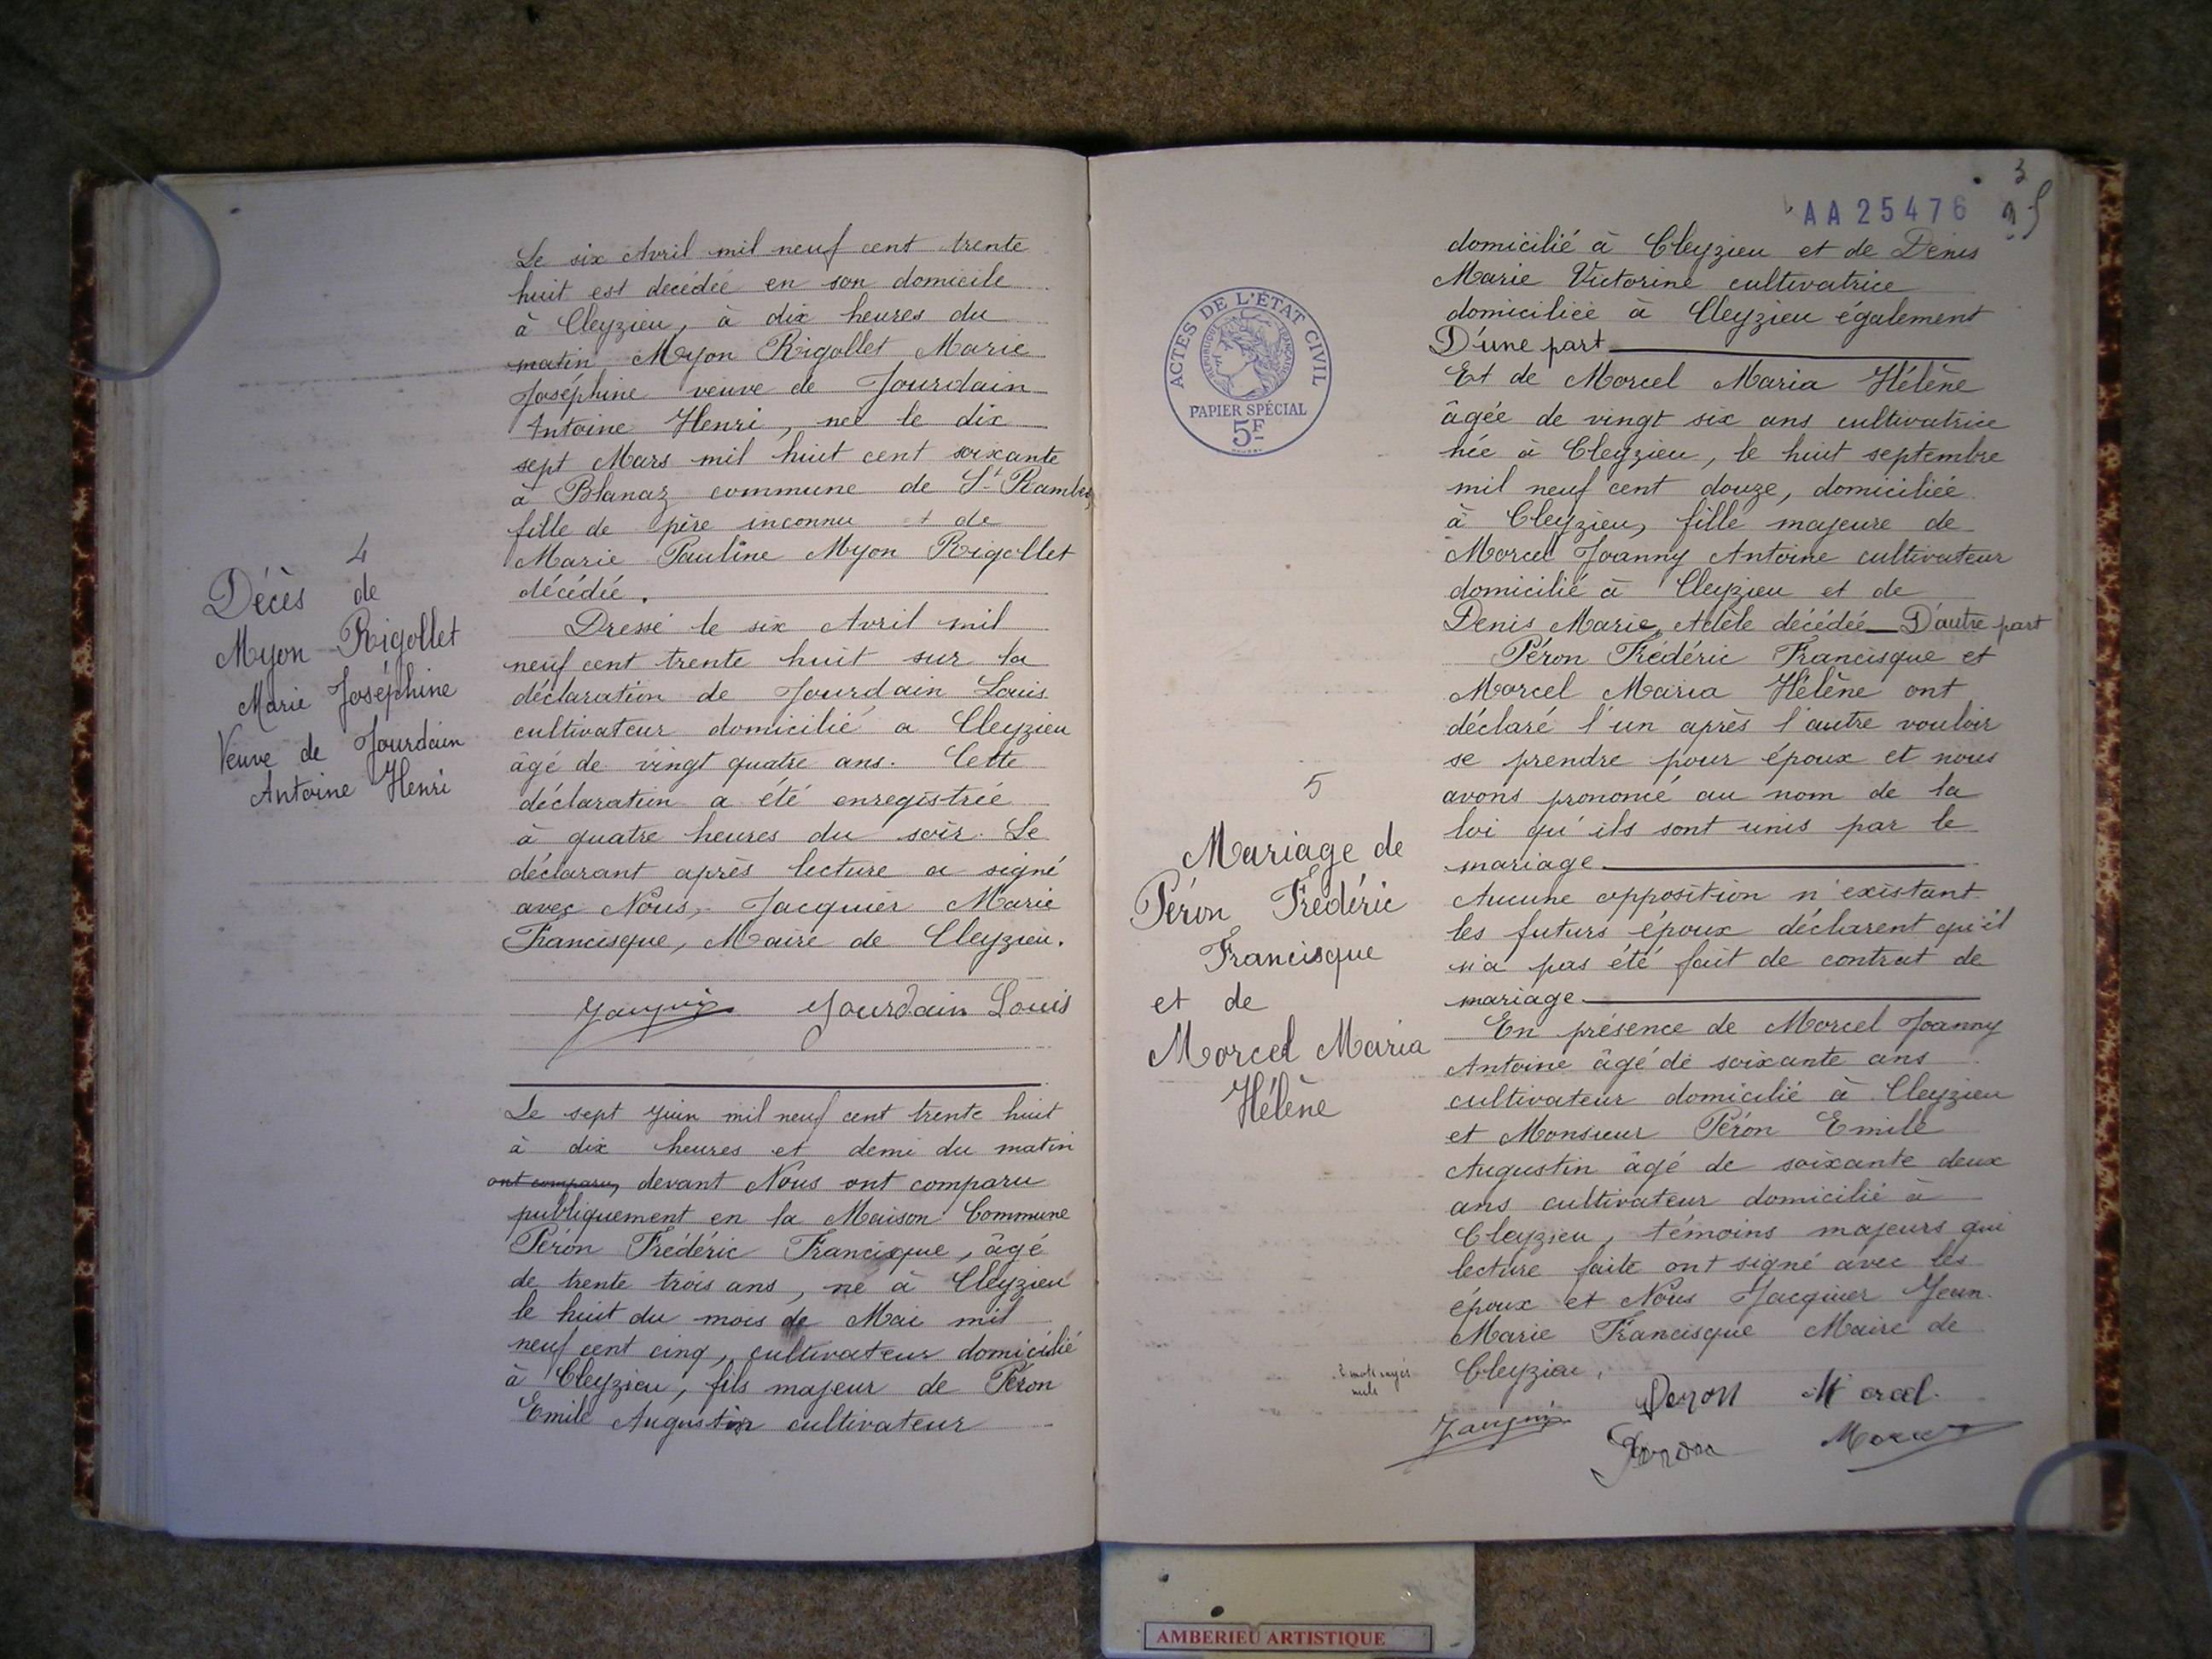 Le six Avril mil neuf cent trente
huit est décédée en son domicile
à Cleyzieu, à dix heures du
matin Myon Rigollet Marie
Joséphine veuve de Jourdain
Antoine Henri, née le dix
sept Mars mil huit cent soixante
à Blanaz commune de St Rambert,
fille de père inconnu et de
Marie Pauline Myon Rigollet
décédée.
Dressé le six Avril mil
neuf cent trente huit sur la
déclaration de Jourdain Louis
cultivateur domicilié a Cleyzieu
âgé de vingt quatre ans. Cette
déclaration a été enregistrée
à quatre heures du soir. Le
déclarant après lecture a signé
avec Nous, Jacquier Marie
Francisque, Maire de Cleyzieu.
Jourdain Louis
4
Décès de
Myon Rigollet
Marie Joséphine
Veuve de Jourdain
Antoine Henri
Le sept Juin mil neuf cent trente huit
à dix heures et demi du matin
ont comparu, devant Nous ont comparu
publiquement en la Maison Commune
Péron Frédéric Francisque, âgé
de trente trois ans, né à Cleyzieu
le huit du mois de Mai mil
neuf cent cinq, cultivateur domicilié
à Cleyzieu, fils majeur de Péron
Emile Augustin cultivateur
AA25476
3
ACTES DE L'ÉTAT CIVIL
RÉPUBLIQUE FRANÇAISE
PAPIER SPÉCIAL
5F
domicilié à Cleyzieu et de Denis
Marie Victorine cultivatrice
domiciliée à Cleyzieu également
D'une part
Et de Morcel Maria Hélène
âgée de vingt six ans cultivatrice
née à Cleyzieu, le huit septembre
mil neuf cent douze, domiciliée
à Cleyzieu, fille majeure de
Morcel Joanny Antoine cultivateur
domicilié à Cleyzieu et de
Denis Marie Adèle décédée D'autre part
Péron Frédéric Francisque et
Morcel Maria Hélène ont
déclaré l'un après l'autre vouloir
se prendre pour époux et nous
avons prononcé au nom de la
loi qu'ils sont unis par le
mariage
Aucune opposition n'existant
les futurs époux déclarent qu'il
n'a pas été fait de contrat de
mariage
En présence de Morcel Joanny
Antoine âgé de soixante ans
cultivateur domicilié à Cleyzieu
et Monsieur Péron Emile
Augustin âgé de soixante deux
ans cultivateur domicilié à
Cleyzieu, témoins majeurs qui
lecture faite ont signé avec les
époux et Nous Jacquier Jean
Marie Francisque Maire de
Cleyzieu.
5
Mariage de
Péron Frédéric
Francisque
et de
Morcel Maria
Hélène
2 mots rayés
nuls
Peron Morcel
Peron Morcel
AMBERIEU ARTISTIQUE